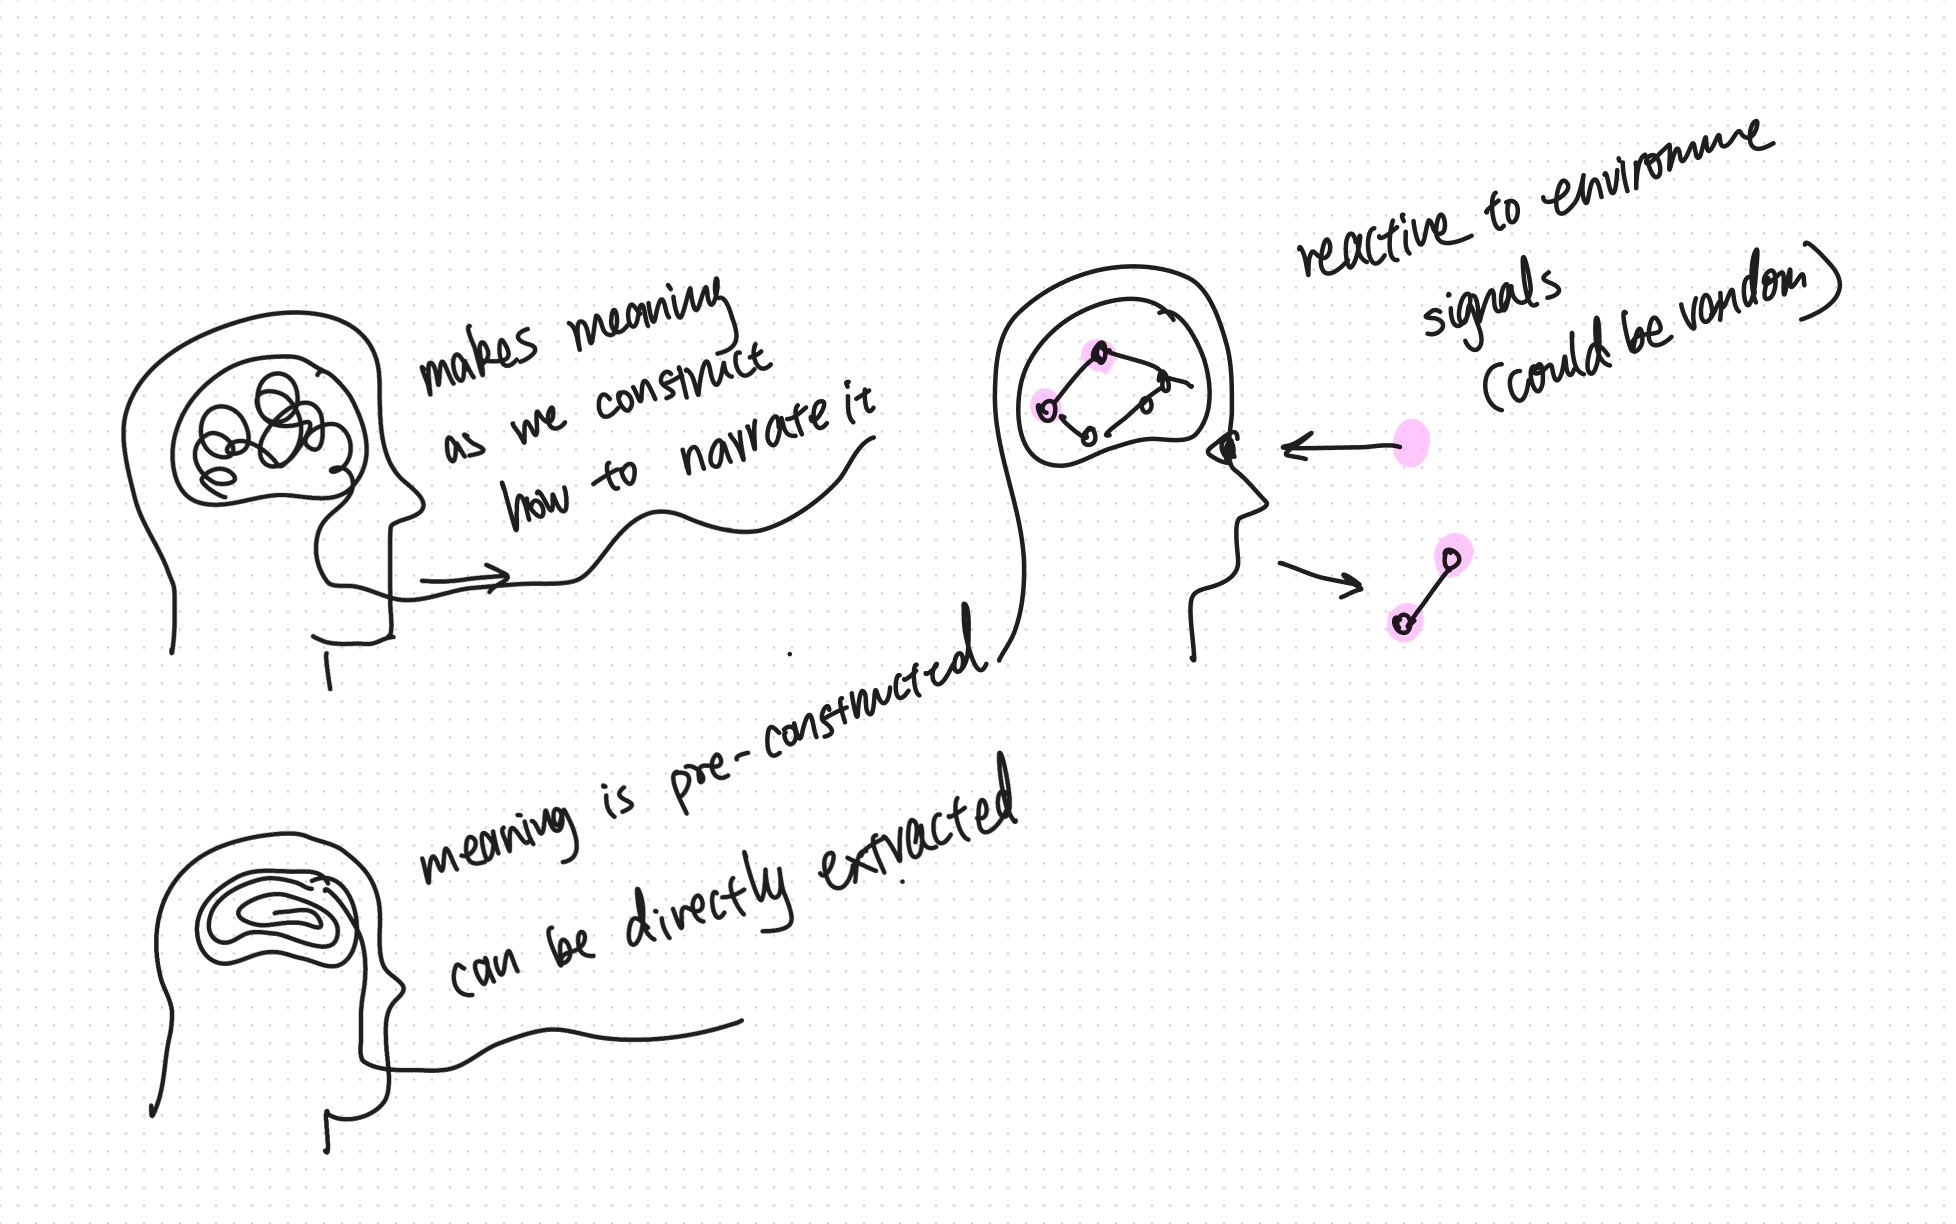 makes meaning
as we construct
how to narrate it
reactive to environme
signals
(could be random)
meaning is pre-constructed
can be directly extracted